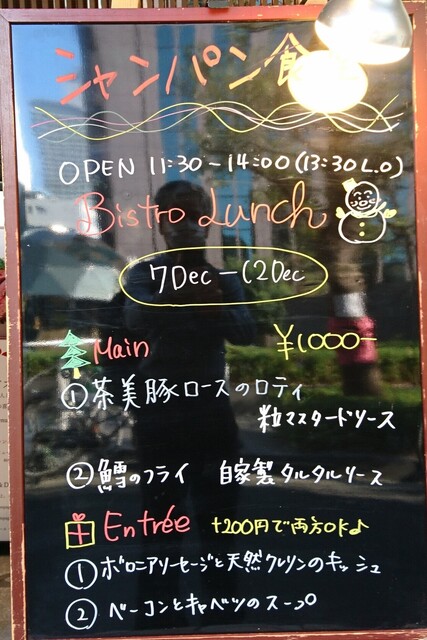 シャンパン食
OPEN 11:30~14:00 (13:30 L.O)
Bistro Lunch
7Dec-12Dec
Main ¥1000-
①茶美豚ロースのロティ
粒マスタードソース
②鱈のフライ 自家製タルタルソース
Entrée +200円で両方OK♪
①ボロニアソーセージと天然クレソンのキッシュ
②ベーコンとキャベツのスープ